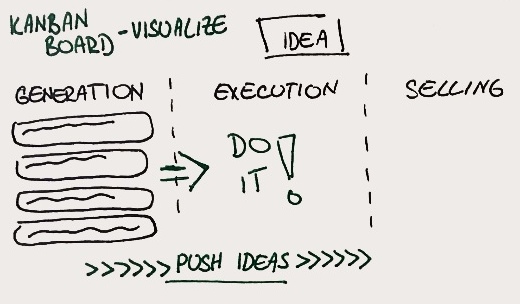 KANBAN
BOARD - VISUALIZE
IDEA
GENERATION
EXECUTION
SELLING
DO
IT!
>>>>>> PUSH IDEAS >>>>>>